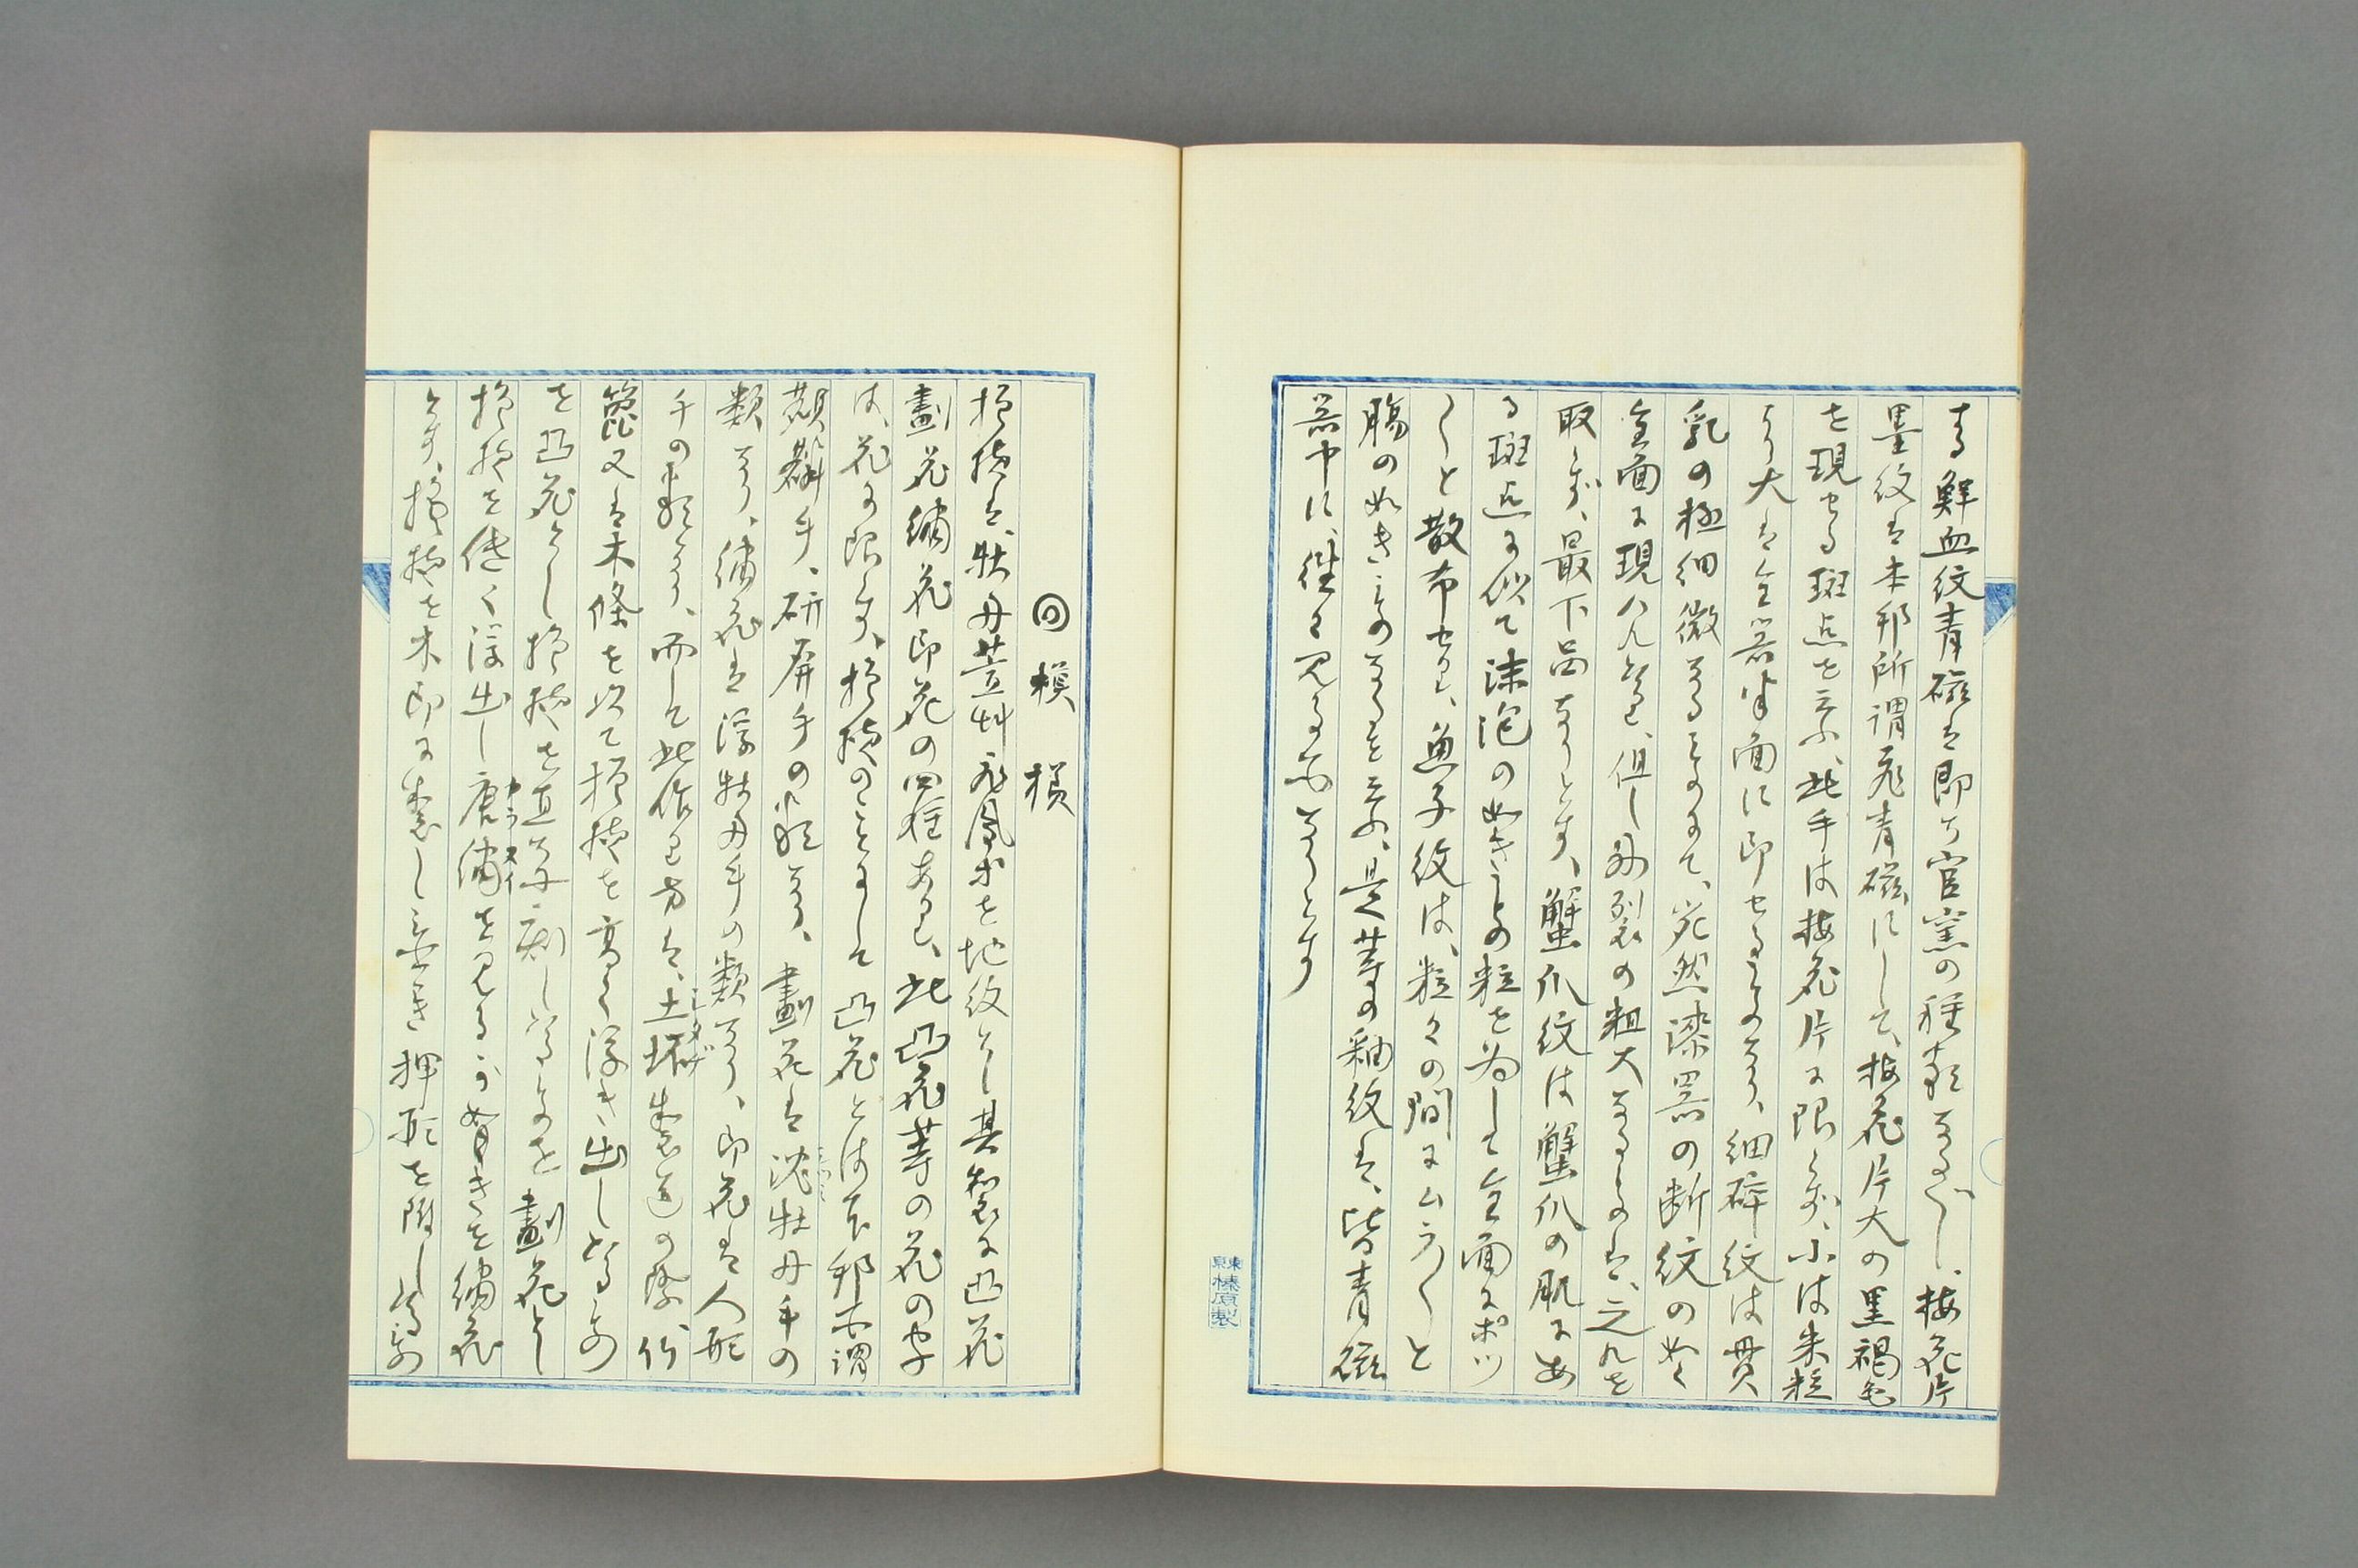 する鮮血紋青磁は即ち官窯の種類なるべし、梅花片
墨紋は本邦所謂飛青磁にして、梅花片大の黒褐色
を現せる斑点を云ふ、此手は梅花片に限らず、小は朱粒
より大は全器半面に即せるものあり、細砕紋は貫
乳の極細微なるものにて、宛然漆器の断紋の如く
全面に現はれたり、但し励裂の粗大なるものは、之れを
取らず、最下品なりとす、蟹爪紋は蟹爪の肌にあ
る斑点に似て沫泡の如きもの粒を為して全面にポツ
〱と散布せり、魚子紋は、粒々の間にムラ〱と
腸の如きものあるを云ふ、是等の釉紋は、皆青磁
器中に、往々見る所なりとす
東京榛原製
◎模様
模様は、牡丹萱艸飛鳳等を地紋とし其製に凸花
劃花繍花印花の四種あり、此凸花等の花の字
は、花に限らず、模様のことにして凸花とは本邦所謂
類なり、繍花は浮牡丹手の類なり、印花は人形
手の類なり、而して此作り方は、土坏製造の際、竹
篦又は木條を以て模様を高く浮き出したるもの
を凸花とし模様を直ちに刻したるものを劃花とし
模様を低く浮出し唐繍を見るが如きを繍花
とす、模様を木印に製し之を押形を附したるもの